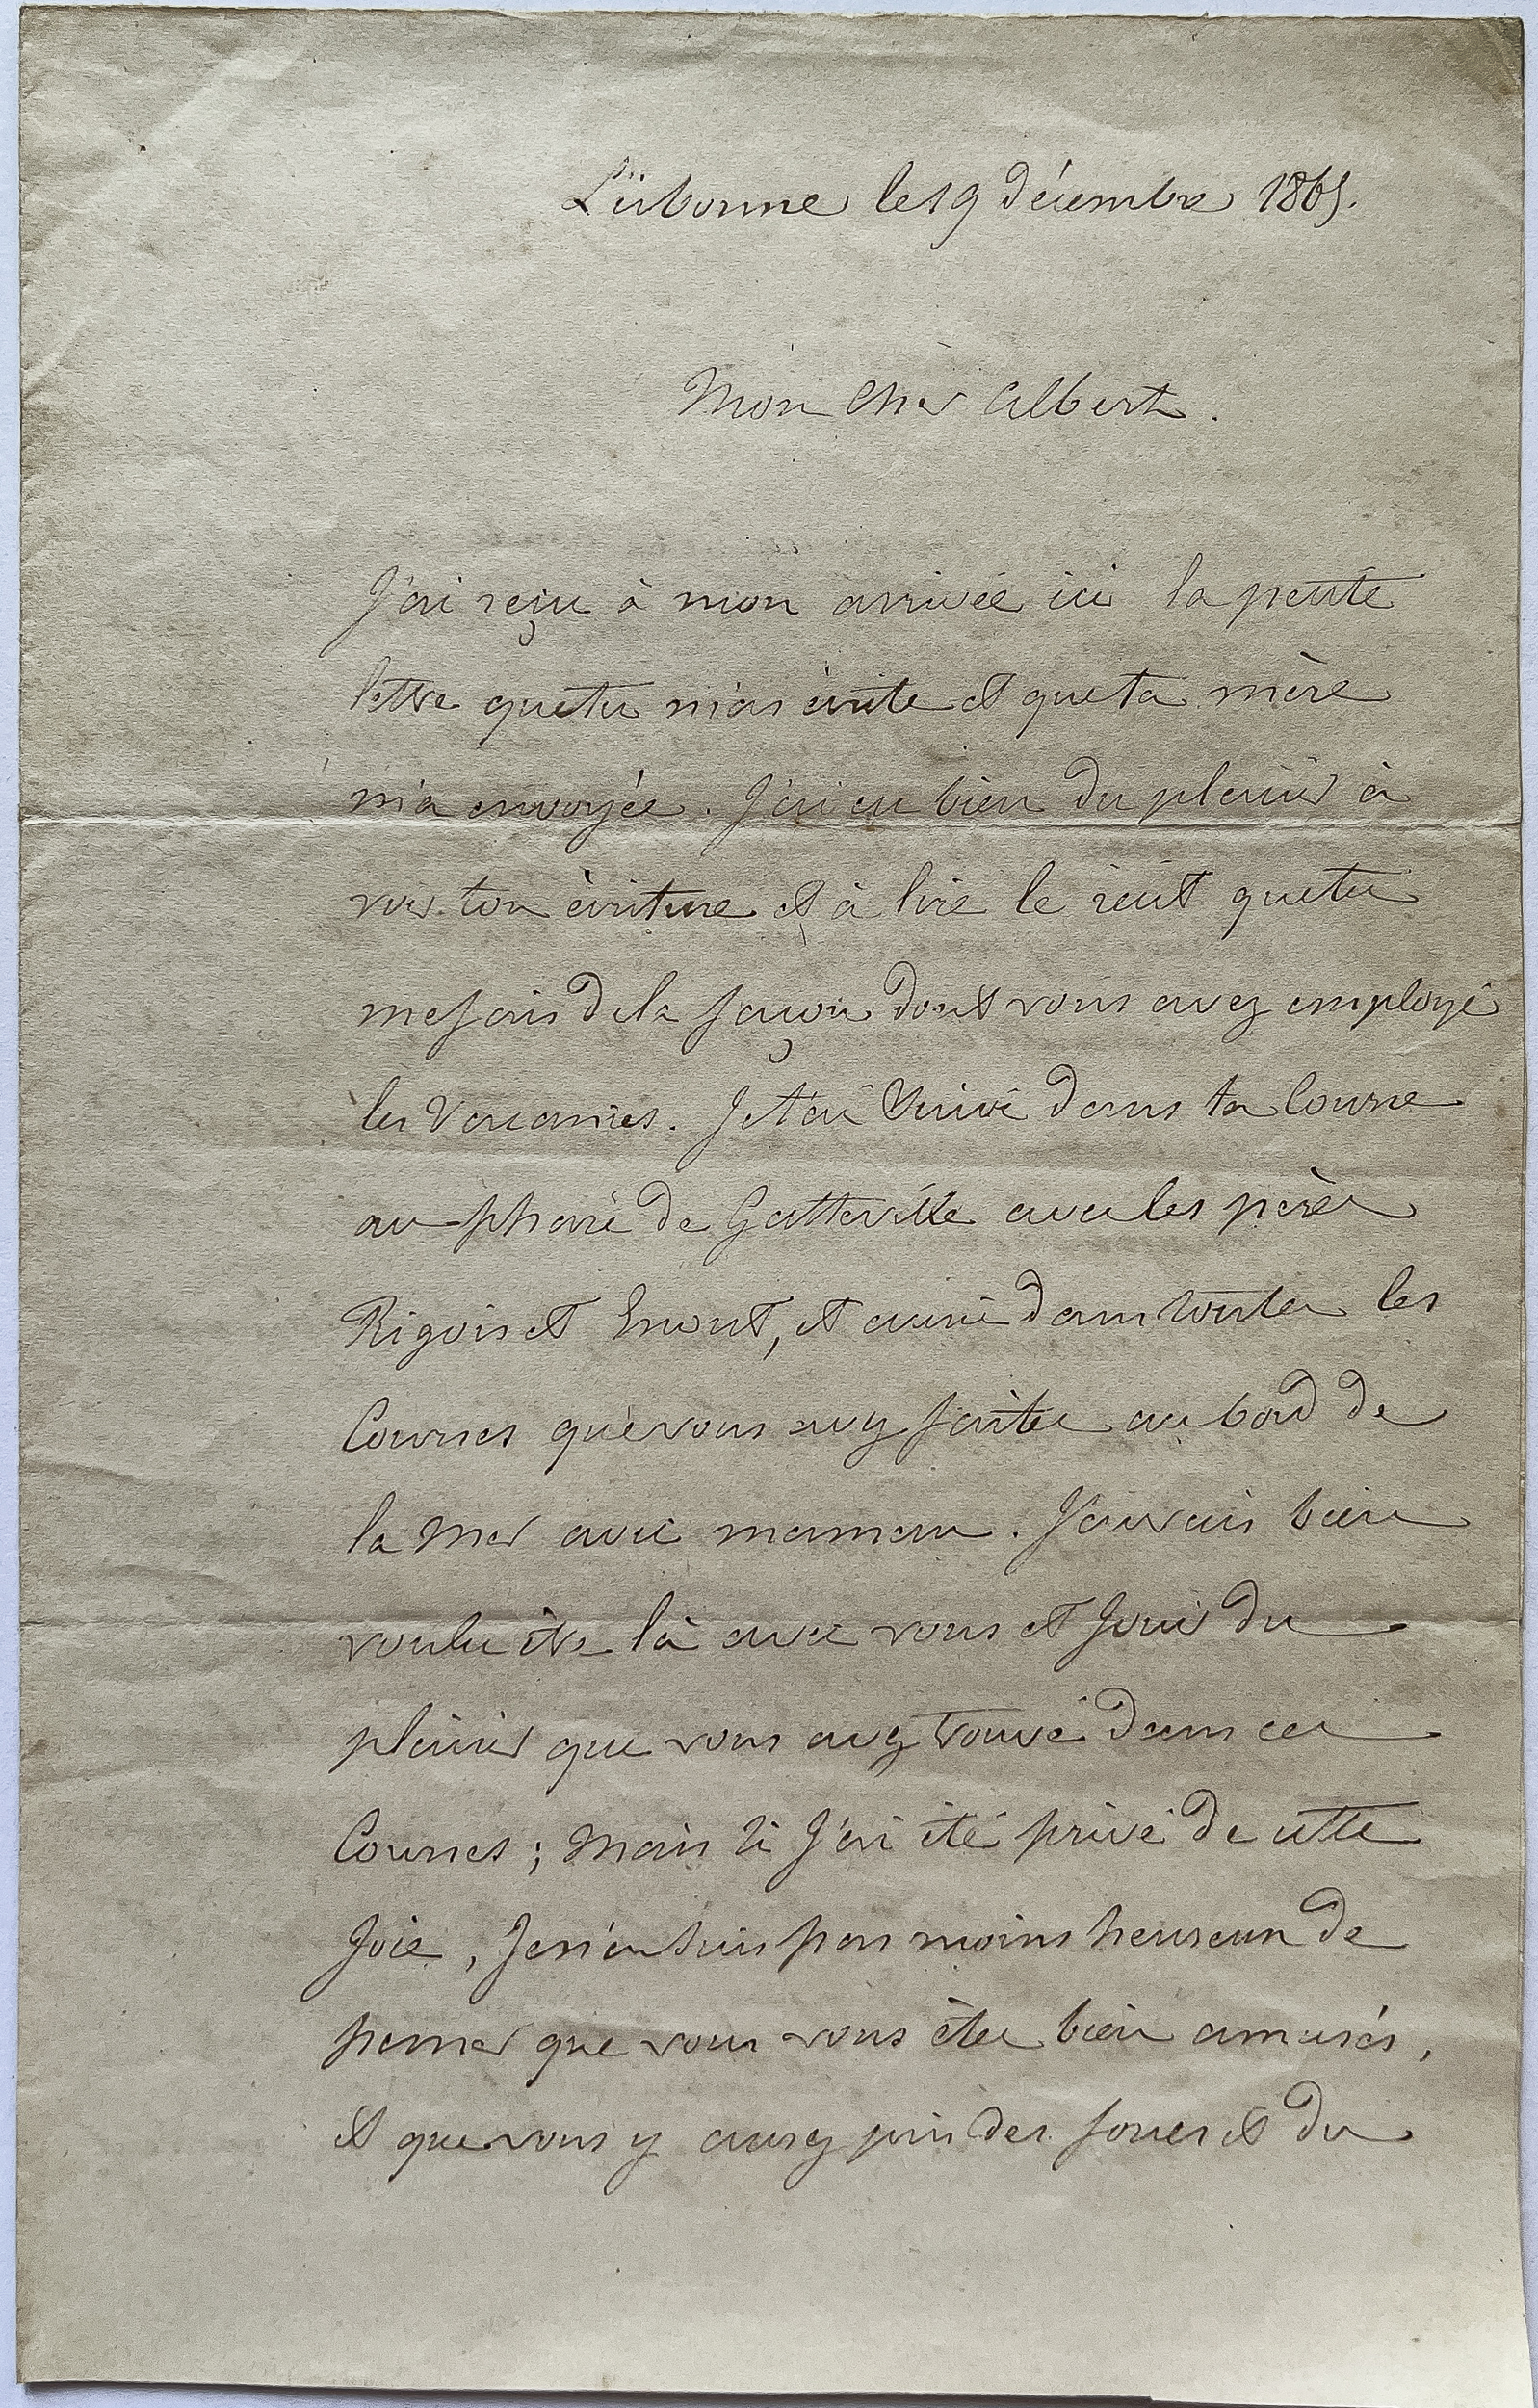 Lisbonne le 19 décembre 1865.
Mon cher Albert.
J'ai reçu à mon arrivée ici la petite
lettre que tu m'as écrite et que ta mère
m'a envoyée. J'ai eu bien du plaisir à
voir ton écriture et à lire le récit que tu
me fais de la façon dont vous avez employé
les vacances. Je t'ai suivi dans ta course
au phare de Gatteville avec les pères
et, et aussi dans toutes les
Courses que vous avez faites au bord de
la mer avec maman. J'aurais bien
voulu être là avec vous et jouir du
plaisir que vous avez trouvé dans ces
Courses; mais si j'ai été privé de cette
joie, Je n'en suis pas moins heureux de
penser que vous vous êtes bien amusés,
et que vous y aurez pris des forces et du